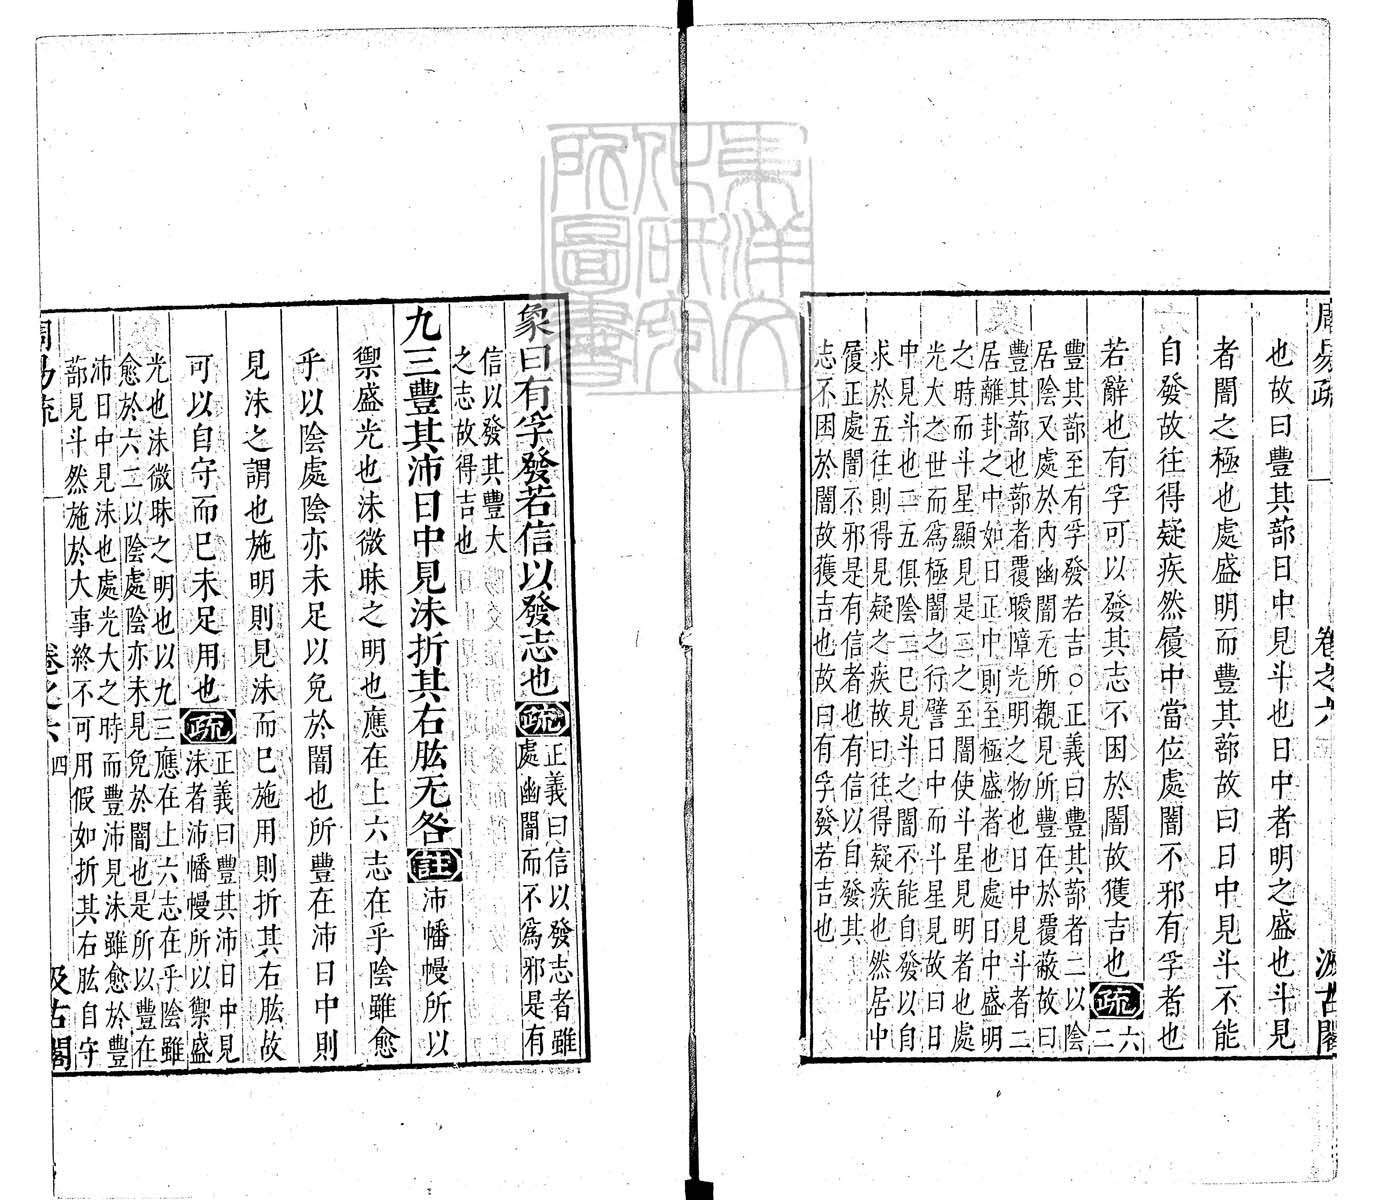 周易疏 卷之六 汲古閣
也故曰豐其蔀日中見斗也日中者明之盛也斗見
者闇之極也處盛明而豐其蔀故曰日中見斗不能
自發故往得疑疾然履中當位處闇不邪有孚者也
若辭也有孚可以發其志不困於闇故獲吉也疏六
二
豐其蔀至有孚發若吉○正義曰豐其蔀者二以陰
居陰又處於內幽闇无所覩見所豐在於覆蔽故曰
豐其蔀也蔀者覆曖障光明之物也日中見斗者二
居離卦之中如日正中則至極盛者也處日中盛明
之時而斗星顯見是二之至闇使斗星見明者也處
光大之世而爲極闇之行譬日中而斗星見故曰日
中見斗也二五俱陰二已見斗之闇不能自發以自
求於五往則得見疑之疾故曰往得疑疾也然居中
履正處闇不邪是有信者也有信以自發其
志不困於闇故獲吉也故曰有孚發若吉也
象曰有孚發若信以發志也疏正義曰信以發志者雖
處幽闇而不爲邪是有
信以發其豐大
之志故得吉也
九三豐其沛日中見沬折其右肱无咎註沛幡幔所以
禦盛光也沬微昧之明也應在上六志在乎陰雖愈
乎以陰處陰亦未足以免於闇也所豐在沛日中則
見沬之謂也施明則見沬而已施用則折其右肱故
可以自守而已未足用也疏正義曰豐其沛日中見
沬者沛幡幔所以禦盛
光也沬微昧之明也以九三應在上六志在乎陰雖
愈於六二以陰處陰亦未見免於闇也是所以豐在
沛日中見沬也處光大之時而豐沛見沬雖愈於豐
蔀見斗然施於大事終不可用假如折其右肱自守
周易疏 卷之六 四 汲古閣
東洋文化研究所圖書